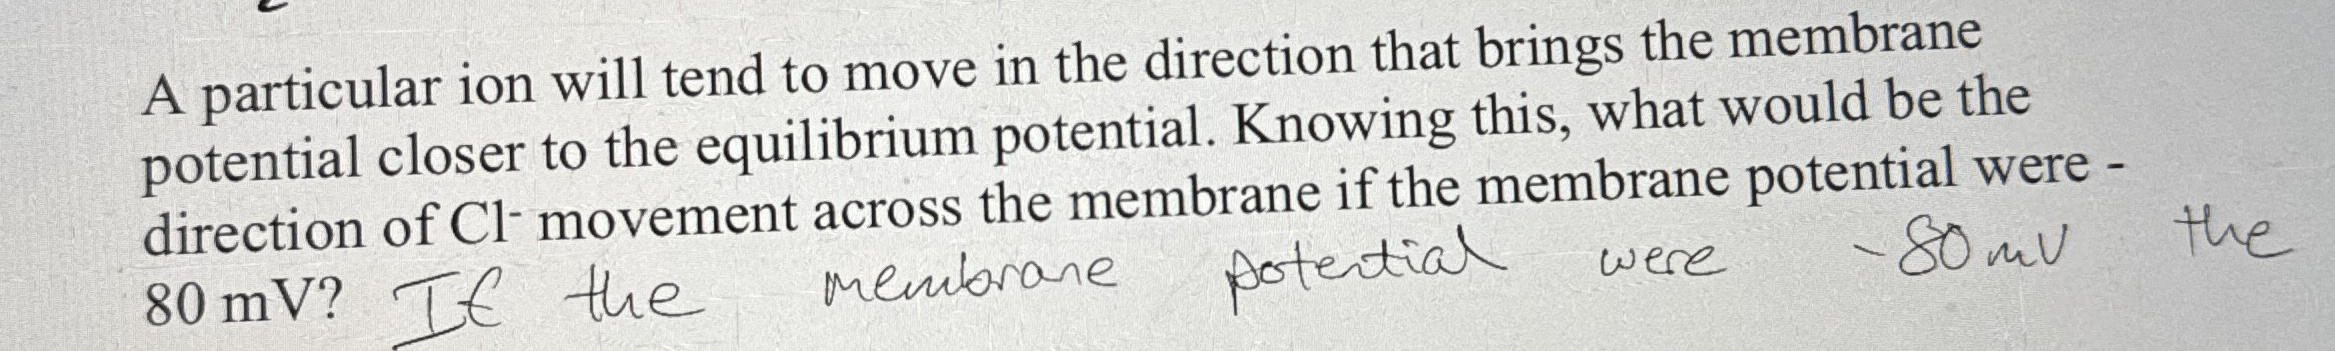 A particular ion will tend to move in the direction that brings the membrane
potential closer to the equilibrium potential. Knowing this, what would be the
direction of Cl- movement across the membrane if the membrane potential were -
80 mV? If the membrane potential were -80 mV the